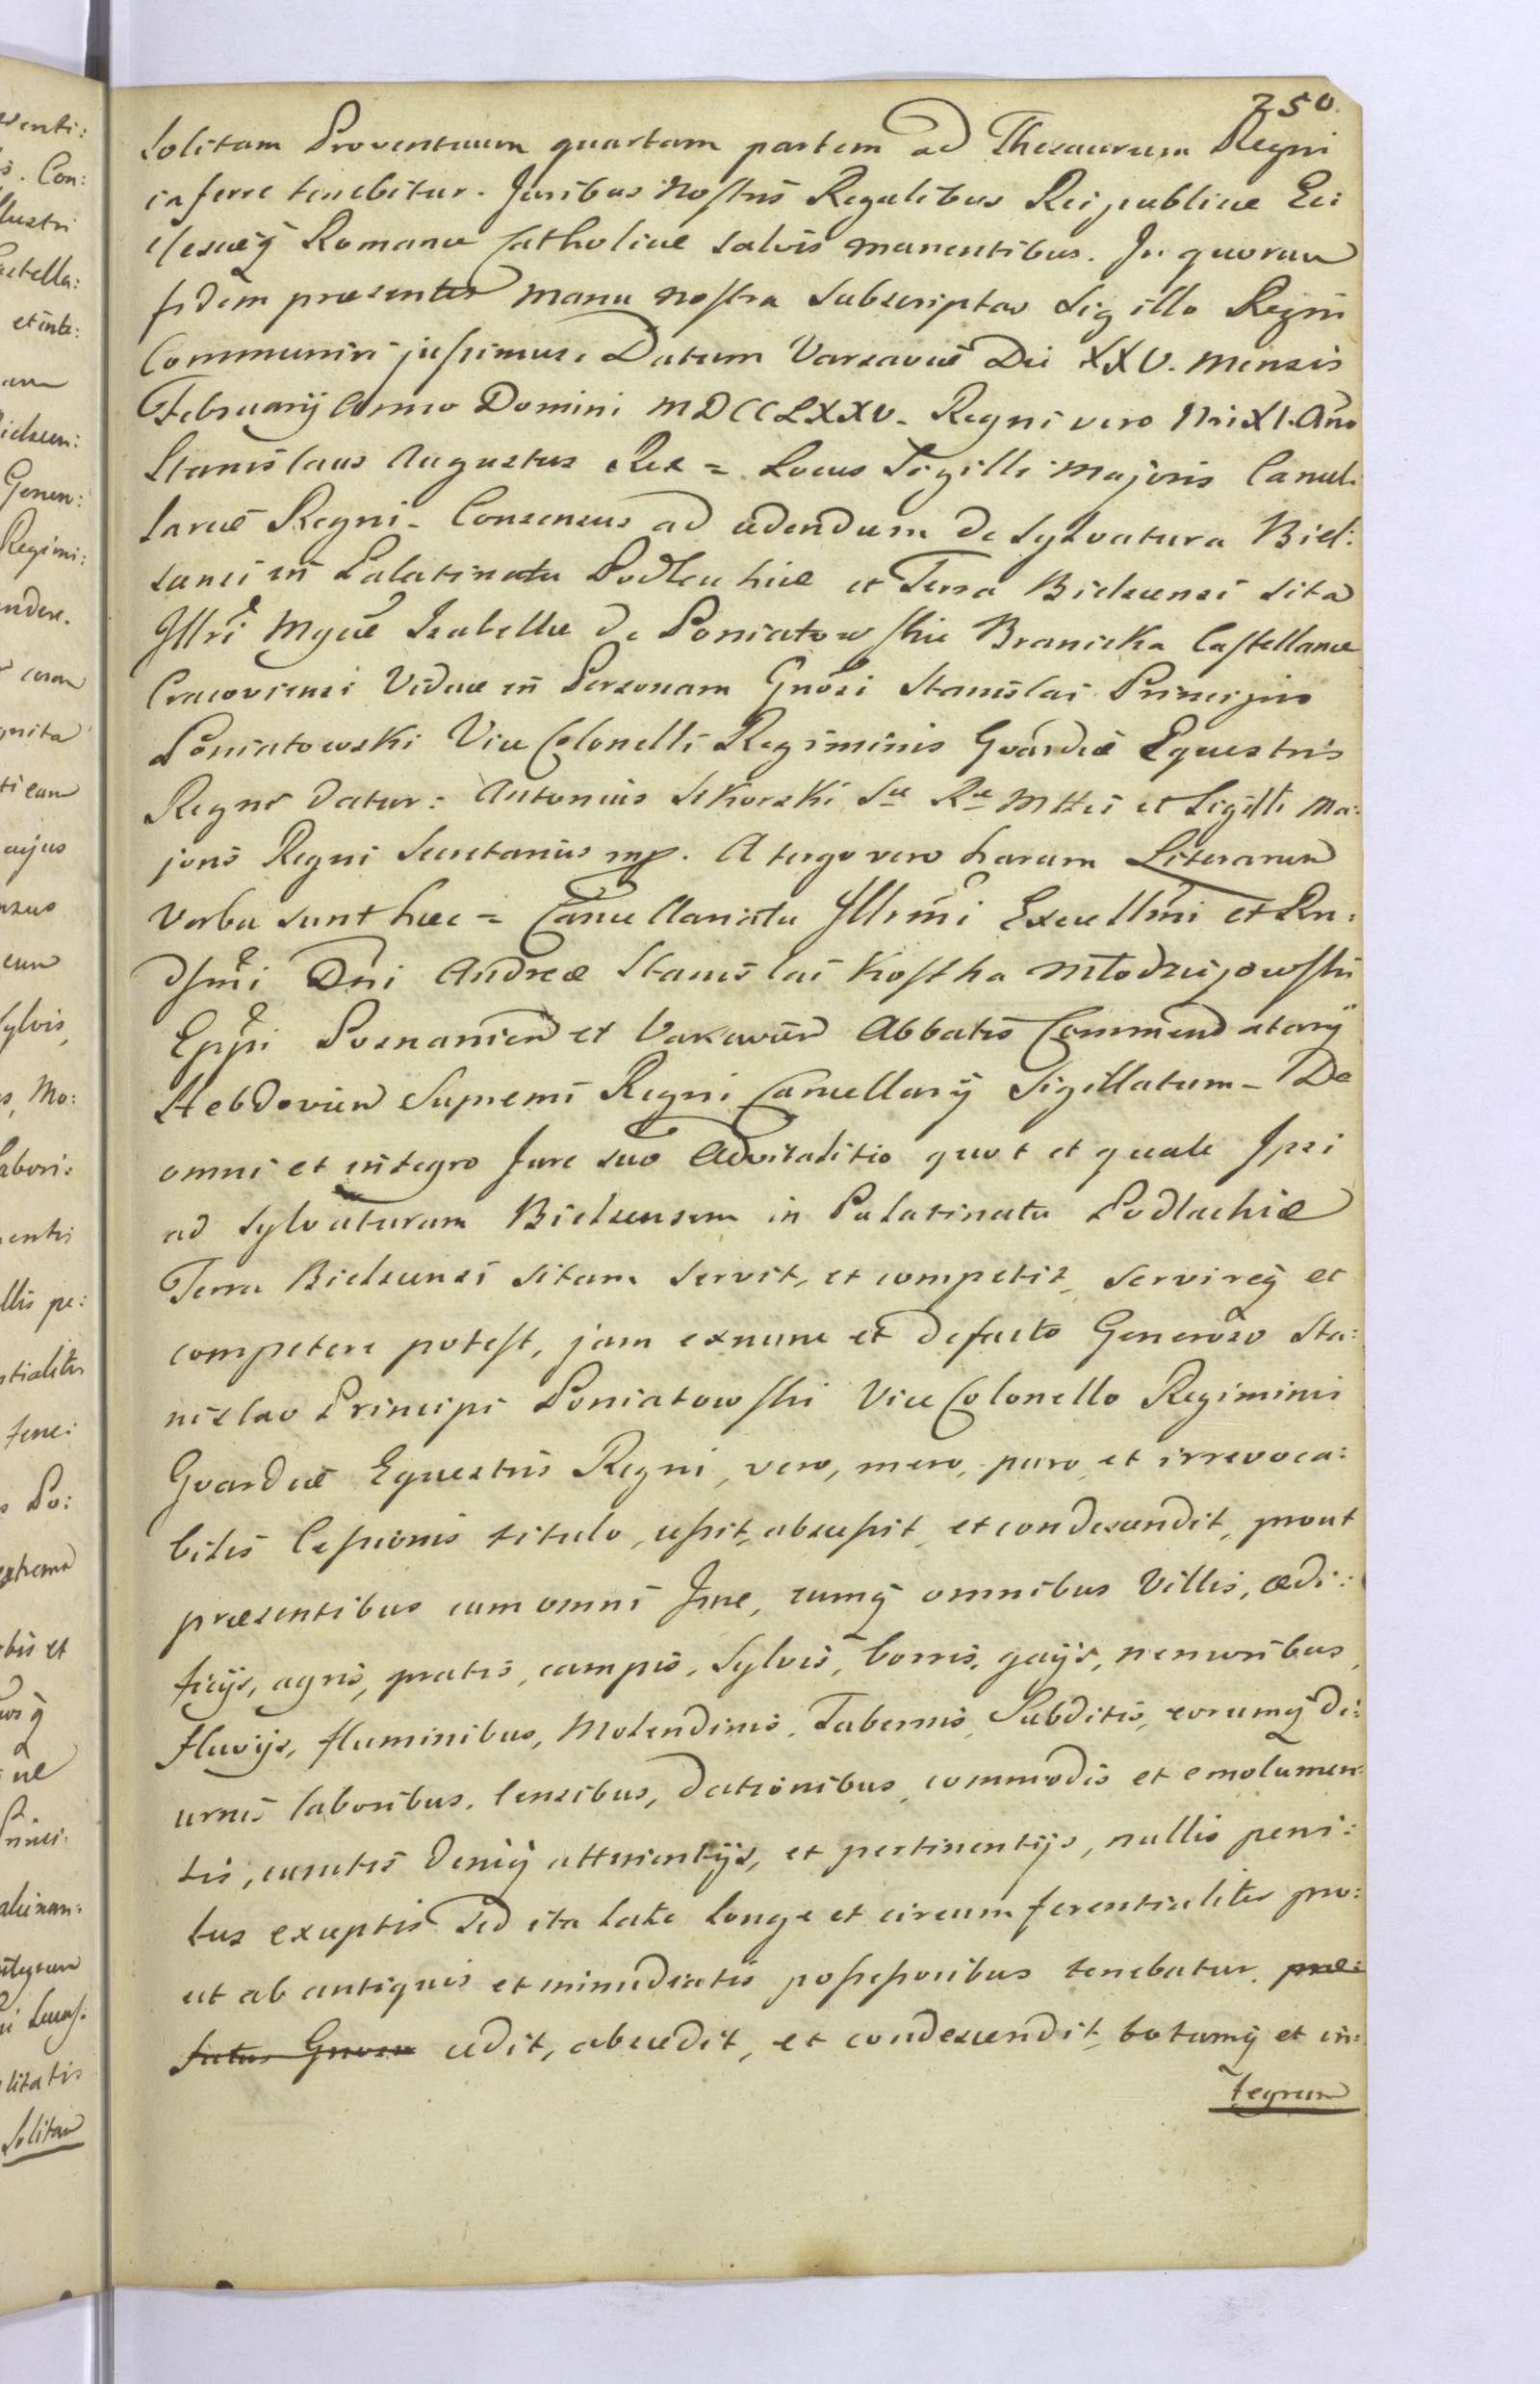 250.
solitam Proventuum quartam partem ad Thesaurum Regni
inferre tenebitur. Juribus nostris Regalibus Reipublicae Ecc
clesiaeq Romanae Catholicae salvis manentibus. In quorum
fidem praesentes manu nostra subscriptas Sigillo Regni
Communiri jussimus. Datum Varsaviae Die XXV. mensis
Februarij Anno Domini MDCCLXXV. Regni vero Nri XI. Ano
Stanislaus Augustus Rex = Locus Sigilli Majoris Cancel:
lariae Regni - Consensus ad cedendum de Sylvatura Biel:
scensi in Palatinatu Podlachiae et Terra Bielscensi sita
Illri Mgcae Izabellae de Poniatowskie Branicka Castellanae
Cracoviensi Viduae in Personam Gnosi Stanislai Principis
Poniatowski Vice Colonelli Regiminis Gvardiae Equestris
Regni datur: Antonius Sikorski Sae Rae Mttis et Sigilli Ma:
joris Regni Secretarius mp. A tergo vero harum Literarum
verba sunt haec = Cancellariatu Illrmi Excellmi et Rn:
dsmi Dni Andreae Stanislai Kostka Młodziejowski
Eppi Posnanien et Varsavien Abbatis Commendatarij
Hebdovien Supremi Regni Cancellarij Sigillatum - De
omni et integro Jure suo Advitalitio quot et quale Ipsi
ad Sylvaturam Bielscensem in Palatinatu Podlachiae
Terra Bielscensi sitam servit, et competit, servireq et
competere potest, jam exnunc et defacto Generoso Sta:
nislao Principi Poniatowski Vice Colonello Regiminis
Gvardiae Equestris Regni, vero, mero, puro et irrevoca:
bilis Cessionis titulo, cessit, abscessit, et condescendit, prout
praesentibus cum omni Jure, cumq omnibus Villis, aedi:
ficijs, agris, pratis, campis, Sylvis, borris, gayis, nemoribus,
fluvijs, fluminibus, Molendinis, Tabernis, Subditis, eorumq di:
urnis laboribus, censibus, dationibus, commodis et emolumen:
tis, cunctis deniq attinentijs, et pertinentijs, nullis peni:
tus exceptis sed ita late longe et circumferentialiter pro:
ut ab antiquis et immediatis possessoribus tenebatur. prae:
fatus cedit, abscedit, et condescendit, totumq et in:
tegrum